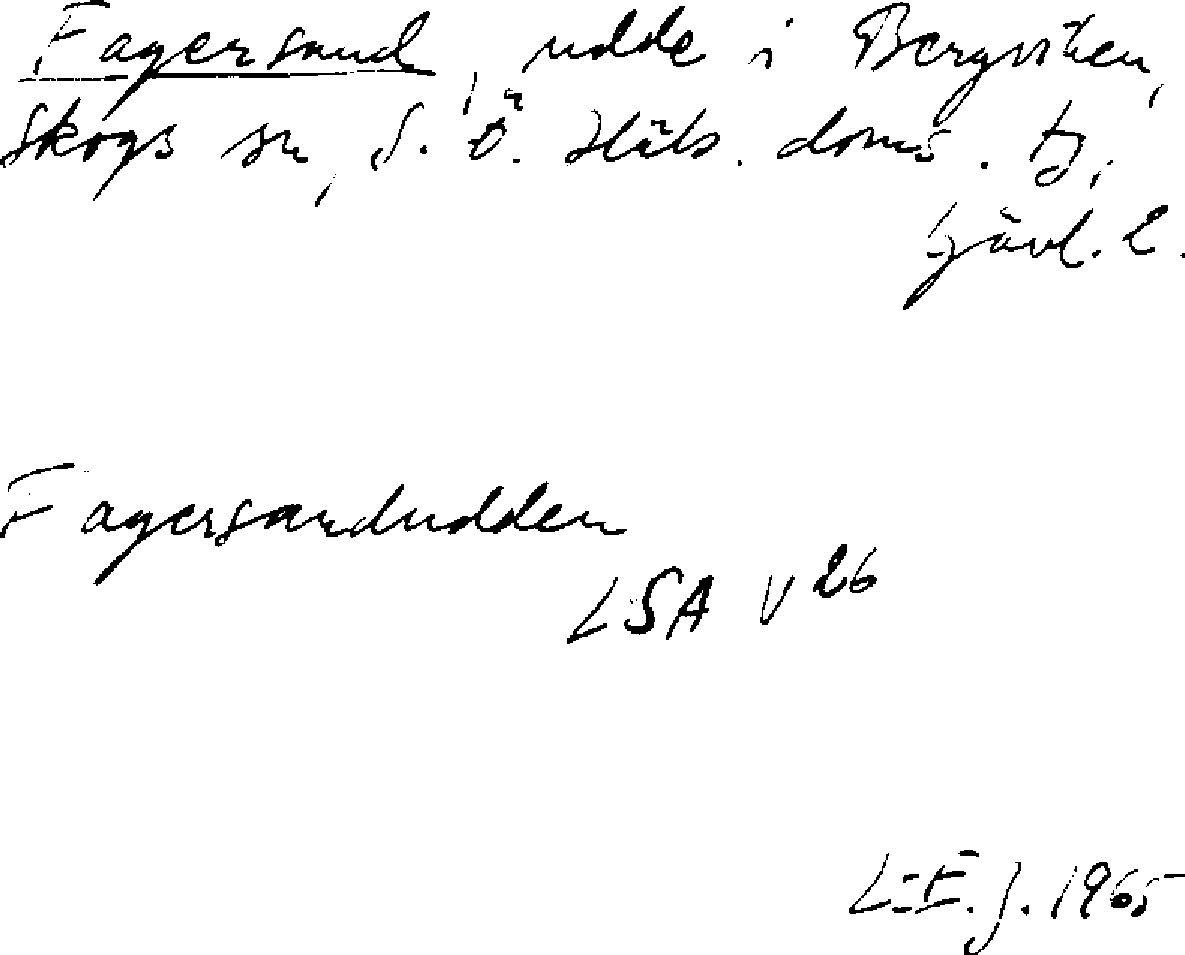 Fagersand, udde i Bergviken,
Skogs sn, S. Ö. Häls. doms. tg,
Gävl. l.
Fagersandudden
LSA V 26
L-E. J. 1965